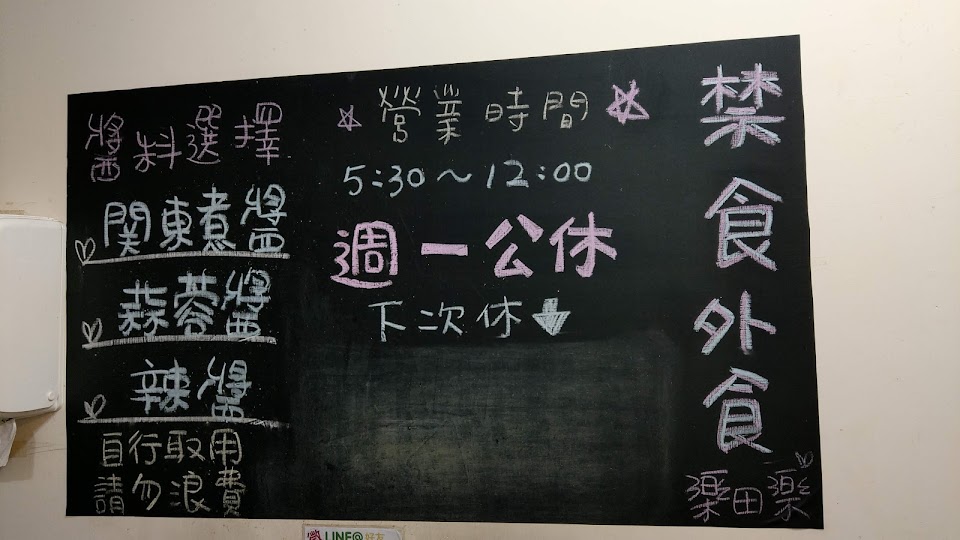 醬料選擇
関東煮醬
蒜蓉醬
辣醬
自行取用
請勿浪費
☆ 營業時間 ☆
5:30～12:00
週一公休
下次休↓
禁食外食
樂田樂
LINE@好友